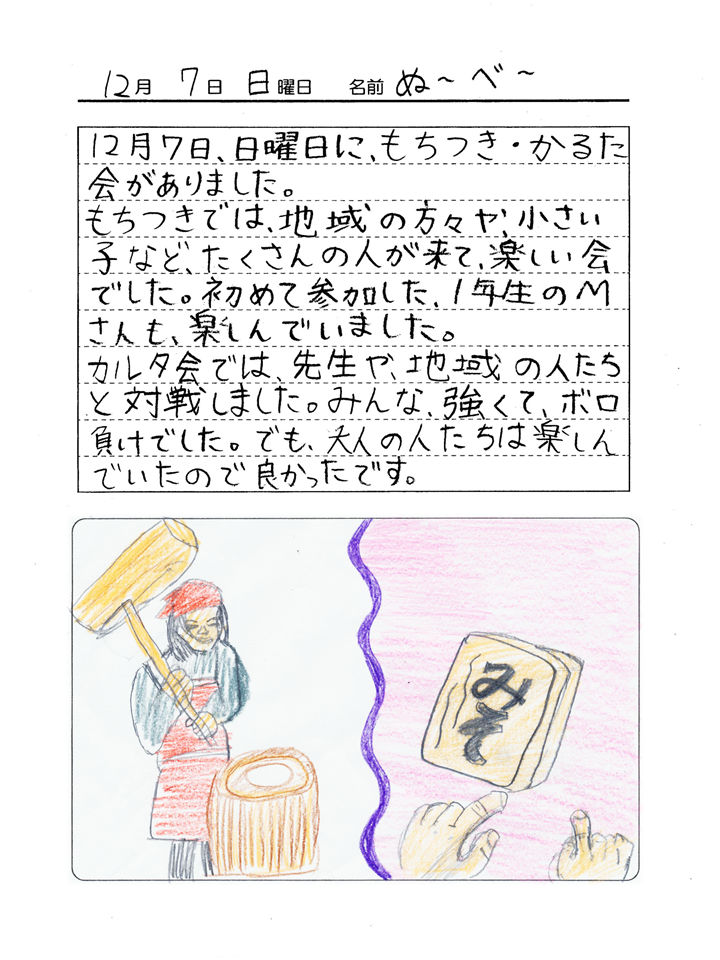 12月 7日 日曜日 名前 ぬ～べ～
12月7日、日曜日に、もちつき・かるた
会がありました。
もちつきでは、地域の方々や、小さい
子など、たくさんの人が来て、楽しい会
でした。初めて参加した、1年生のM
さんも、楽しんでいました。
カルタ会では、先生や、地域の人たち
と対戦しました。みんな、強くて、ボロ
負けでした。でも、大人の人たちは楽しん
でいたので良かったです。
みそ